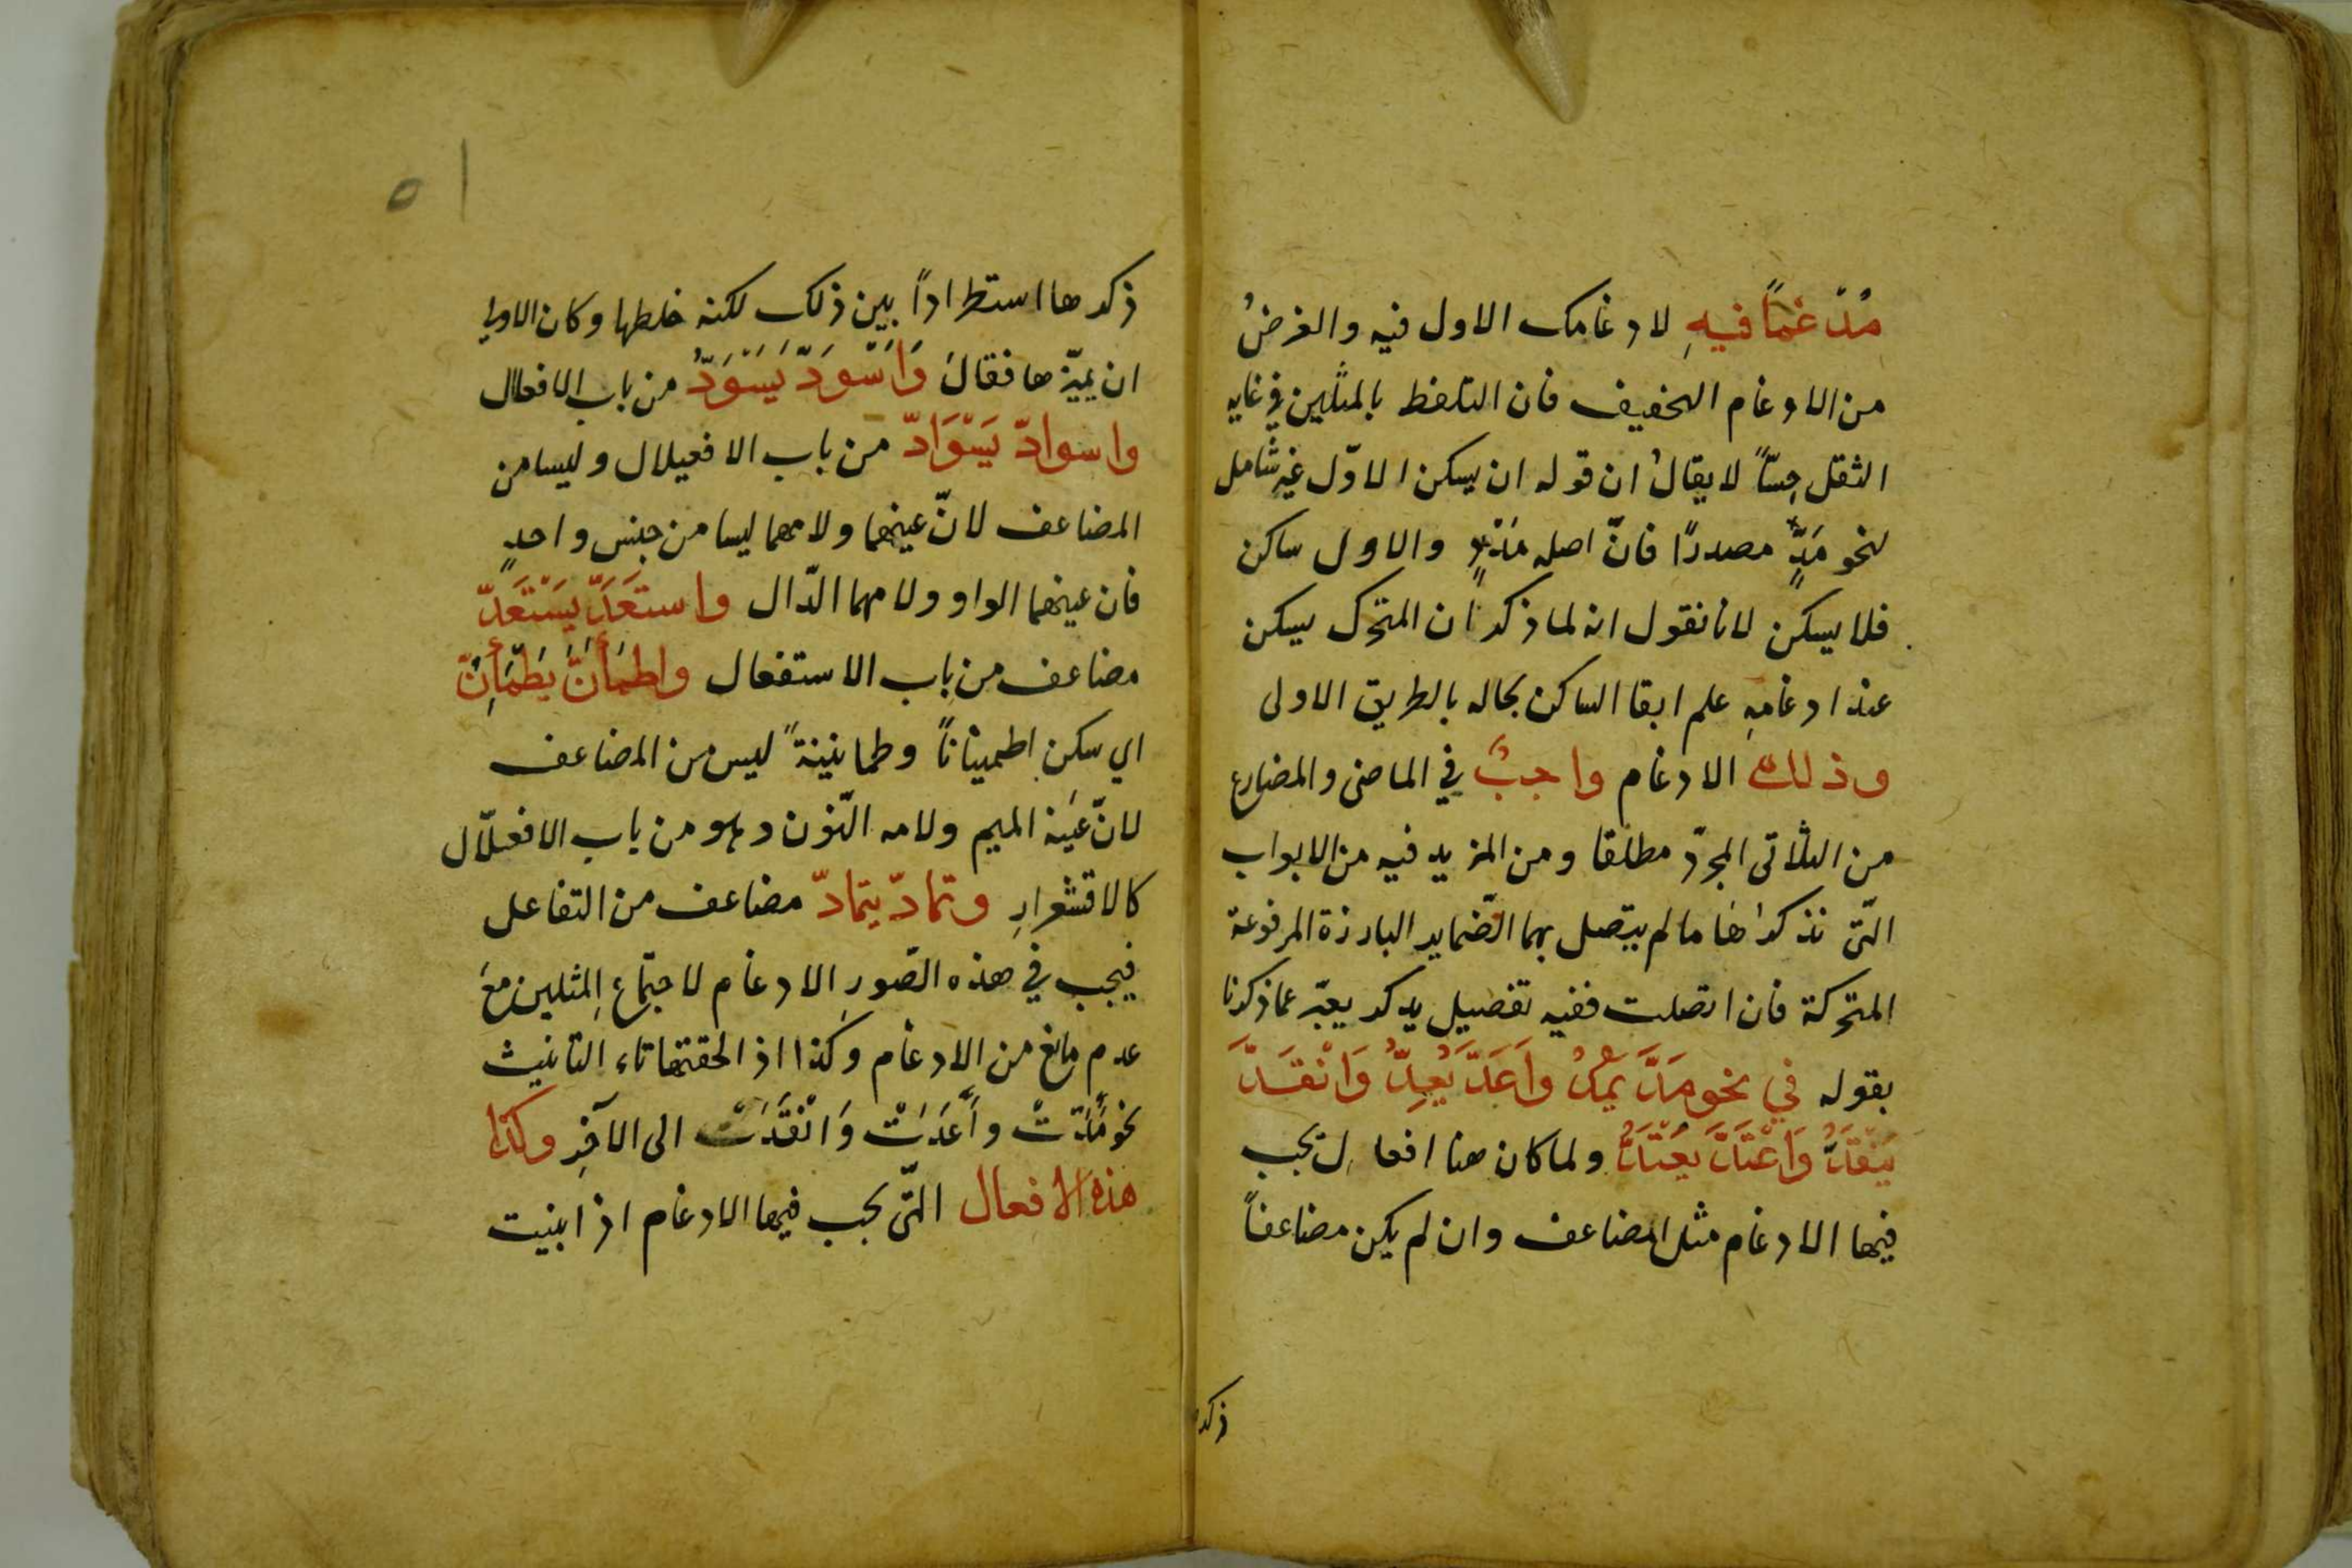 مُدّغمًا فيهِ لادغامك الاول فيه والغرضُ
من الادغام التخفيف فان التلفظ بالمثلين في غايه
الثقل حِسّاً لا يقالُ ان قوله ان يسكن الاوّل غير شامل
لنحو مَدٍّ مصدرًا فانّ اصله مَدْدٍ والاول ساكن
فلا يسكن لانا نقول انه لما ذكر ان المتحرك يسكن
عند ادغامهِ علم ابقا الساكن بحاله بالطريق الاولى
وذلك الادغام واجبٌ في الماضى والمضارع
من الثلاثى المجرّد مطلقا ومن المزيد فيه من الابواب
التّى نذكرها ما لم يتصل بهما الضّماير البارزة المرفوعة
المتحركة فان اتصلت ففيه تفصيل يذكر يعبّر عما ذكرنا
بقوله في نحو مَدَّ يَمُدُّ واَعَدَّ يُعِدُّ وَانْقَدَّ
يَنْقَدُّ وَاعْتَدَّ يَعْتَدُّ ولما كان هنا افعال يجب
فيها الادغام مثل المضاعف وان لم يكن مضاعفاً
ذكر
٥١
ذكرها استطراداً بين ذلك لكنه خلطها وكان الاولى
ان يميّزها فقالَ وَاسْوَدَّ يَسْوَدُّ من باب الافعلال
واسوادّ يَسْوَادّ من باب الافعيلال وليسا من
المضاعف لانّ عينهما ولامهما ليسا من جنس واحدٍ
فان عينهما الواو ولامهما الدّال واستعَدَّ يَسْتَعَدّ
مضاعف من باب الاستفعال واطمَأَنَّ يَطْمَأِنّ
اي سكن اطميناناً وطمانينةً ليس من المضاعف
لانّ عَينه الميم ولامه النّون وهو من باب الافعلّال
كالاقشعرارِ وتمادّ يتمادّ مضاعف من التفاعل
فيجب في هذه الصّورِ الادغام لاجتماع المثلين معَ
عدم مانع من الادغام وكذا اذ الحقتها تاء التانيث
نحو مَدَّتْ واَعَدَّتْ وَانْقَدَّتْ الى الآخِر وكذا
هذه الافعال التّى يجب فيها الادغام اذا بنيت